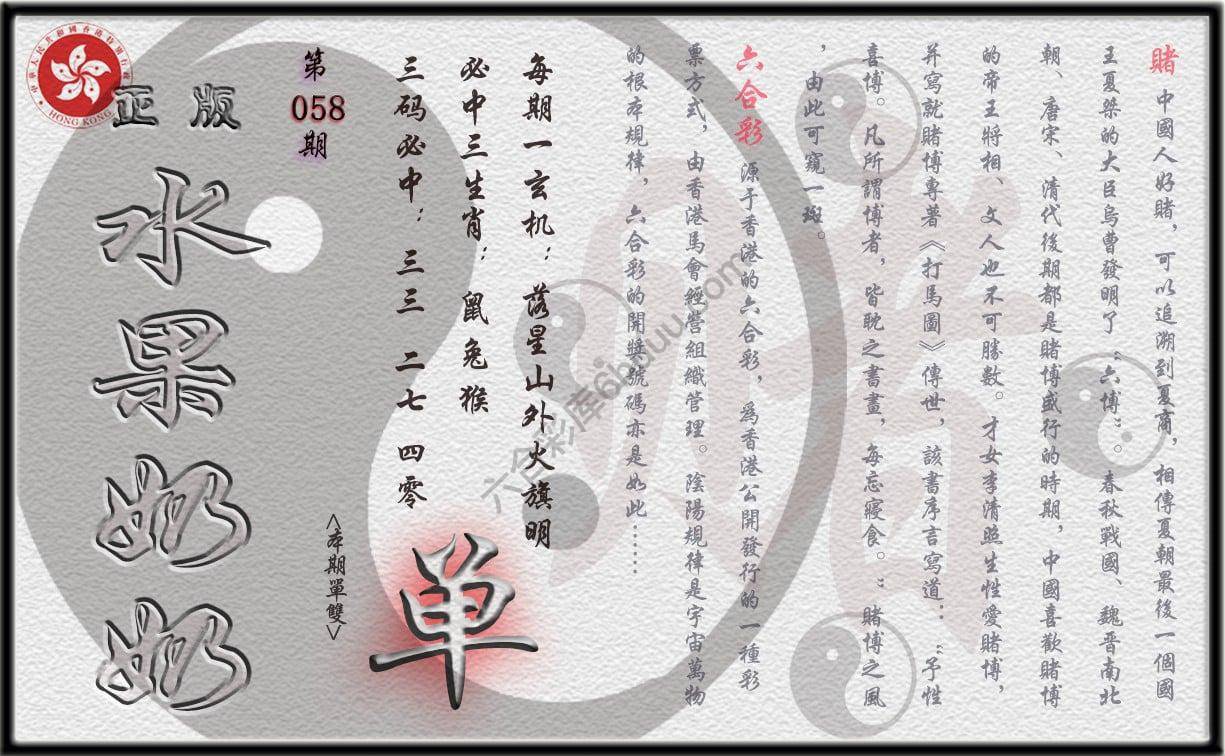 賭 中國人好賭，可以追溯到夏商，相傳夏朝最後一個國
王夏桀的大臣烏曹發明了“六博”。春秋戰國、魏晉南北
朝、唐宋、清代後期都是賭博盛行的時期，中國喜歡賭博
的帝王將相、文人也不可勝數。才女李清照生性愛賭博，
并寫就賭博專著《打馬圖》傳世，該書序言寫道：“予性
喜博。凡所謂博者，皆耽之書畫，每忘寢食。”賭博之風
，由此可窺一斑。
六合彩 源于香港的六合彩，為香港公開發行的一種彩
票方式，由香港馬會經營組織管理。陰陽規律是宇宙萬物
的根本規律，六合彩的開獎號碼亦是如此……
每期一玄机：落星山外火旗明
必中三生肖：鼠兔猴
三码必中：三三 二七 四零
单
<本期單雙>
第
058
期
正版
水果奶奶
中華人民共和國香港特別行政區
HONG KONG
六合彩库6hbuu.com